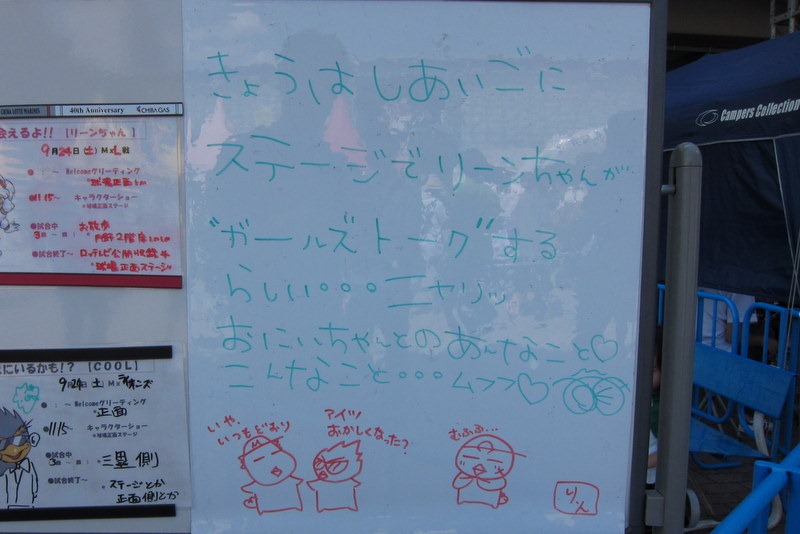 きょうはしあいごに
ステージでリーンちゃんが
"ガールズトーク"する
らしい。。。ニヤリッ
おにいちゃんとのあんなこと♡
こんなこと・・・ムフフ♡
いや、
いつもどおり
アイツ
おかしくなった?
むふふ…
りん
CHIBA LOTTE MARINES
40th Anniversary
CHIBA GAS
会えるよ!!【リーンちゃん】
9月24日(土)M×L戦
●:~ Welcomeグリーティング
*球場正面
●11:15~ キャラクターショー
*球場正面ステージ
●試合中 お散歩
3回~
●試合終了~ ロッテレビ公開収録
*球場正面ステージ
にいるかも!?【COOL】
9月24日 土 M×
●:~ Welcomeグリーティング
*正面
●11:15~ キャラクターショー
*球場正面ステージ
●試合中
3回~回: 三塁側
●試合終了~
ステージとか
正面側とか
Campers Collection